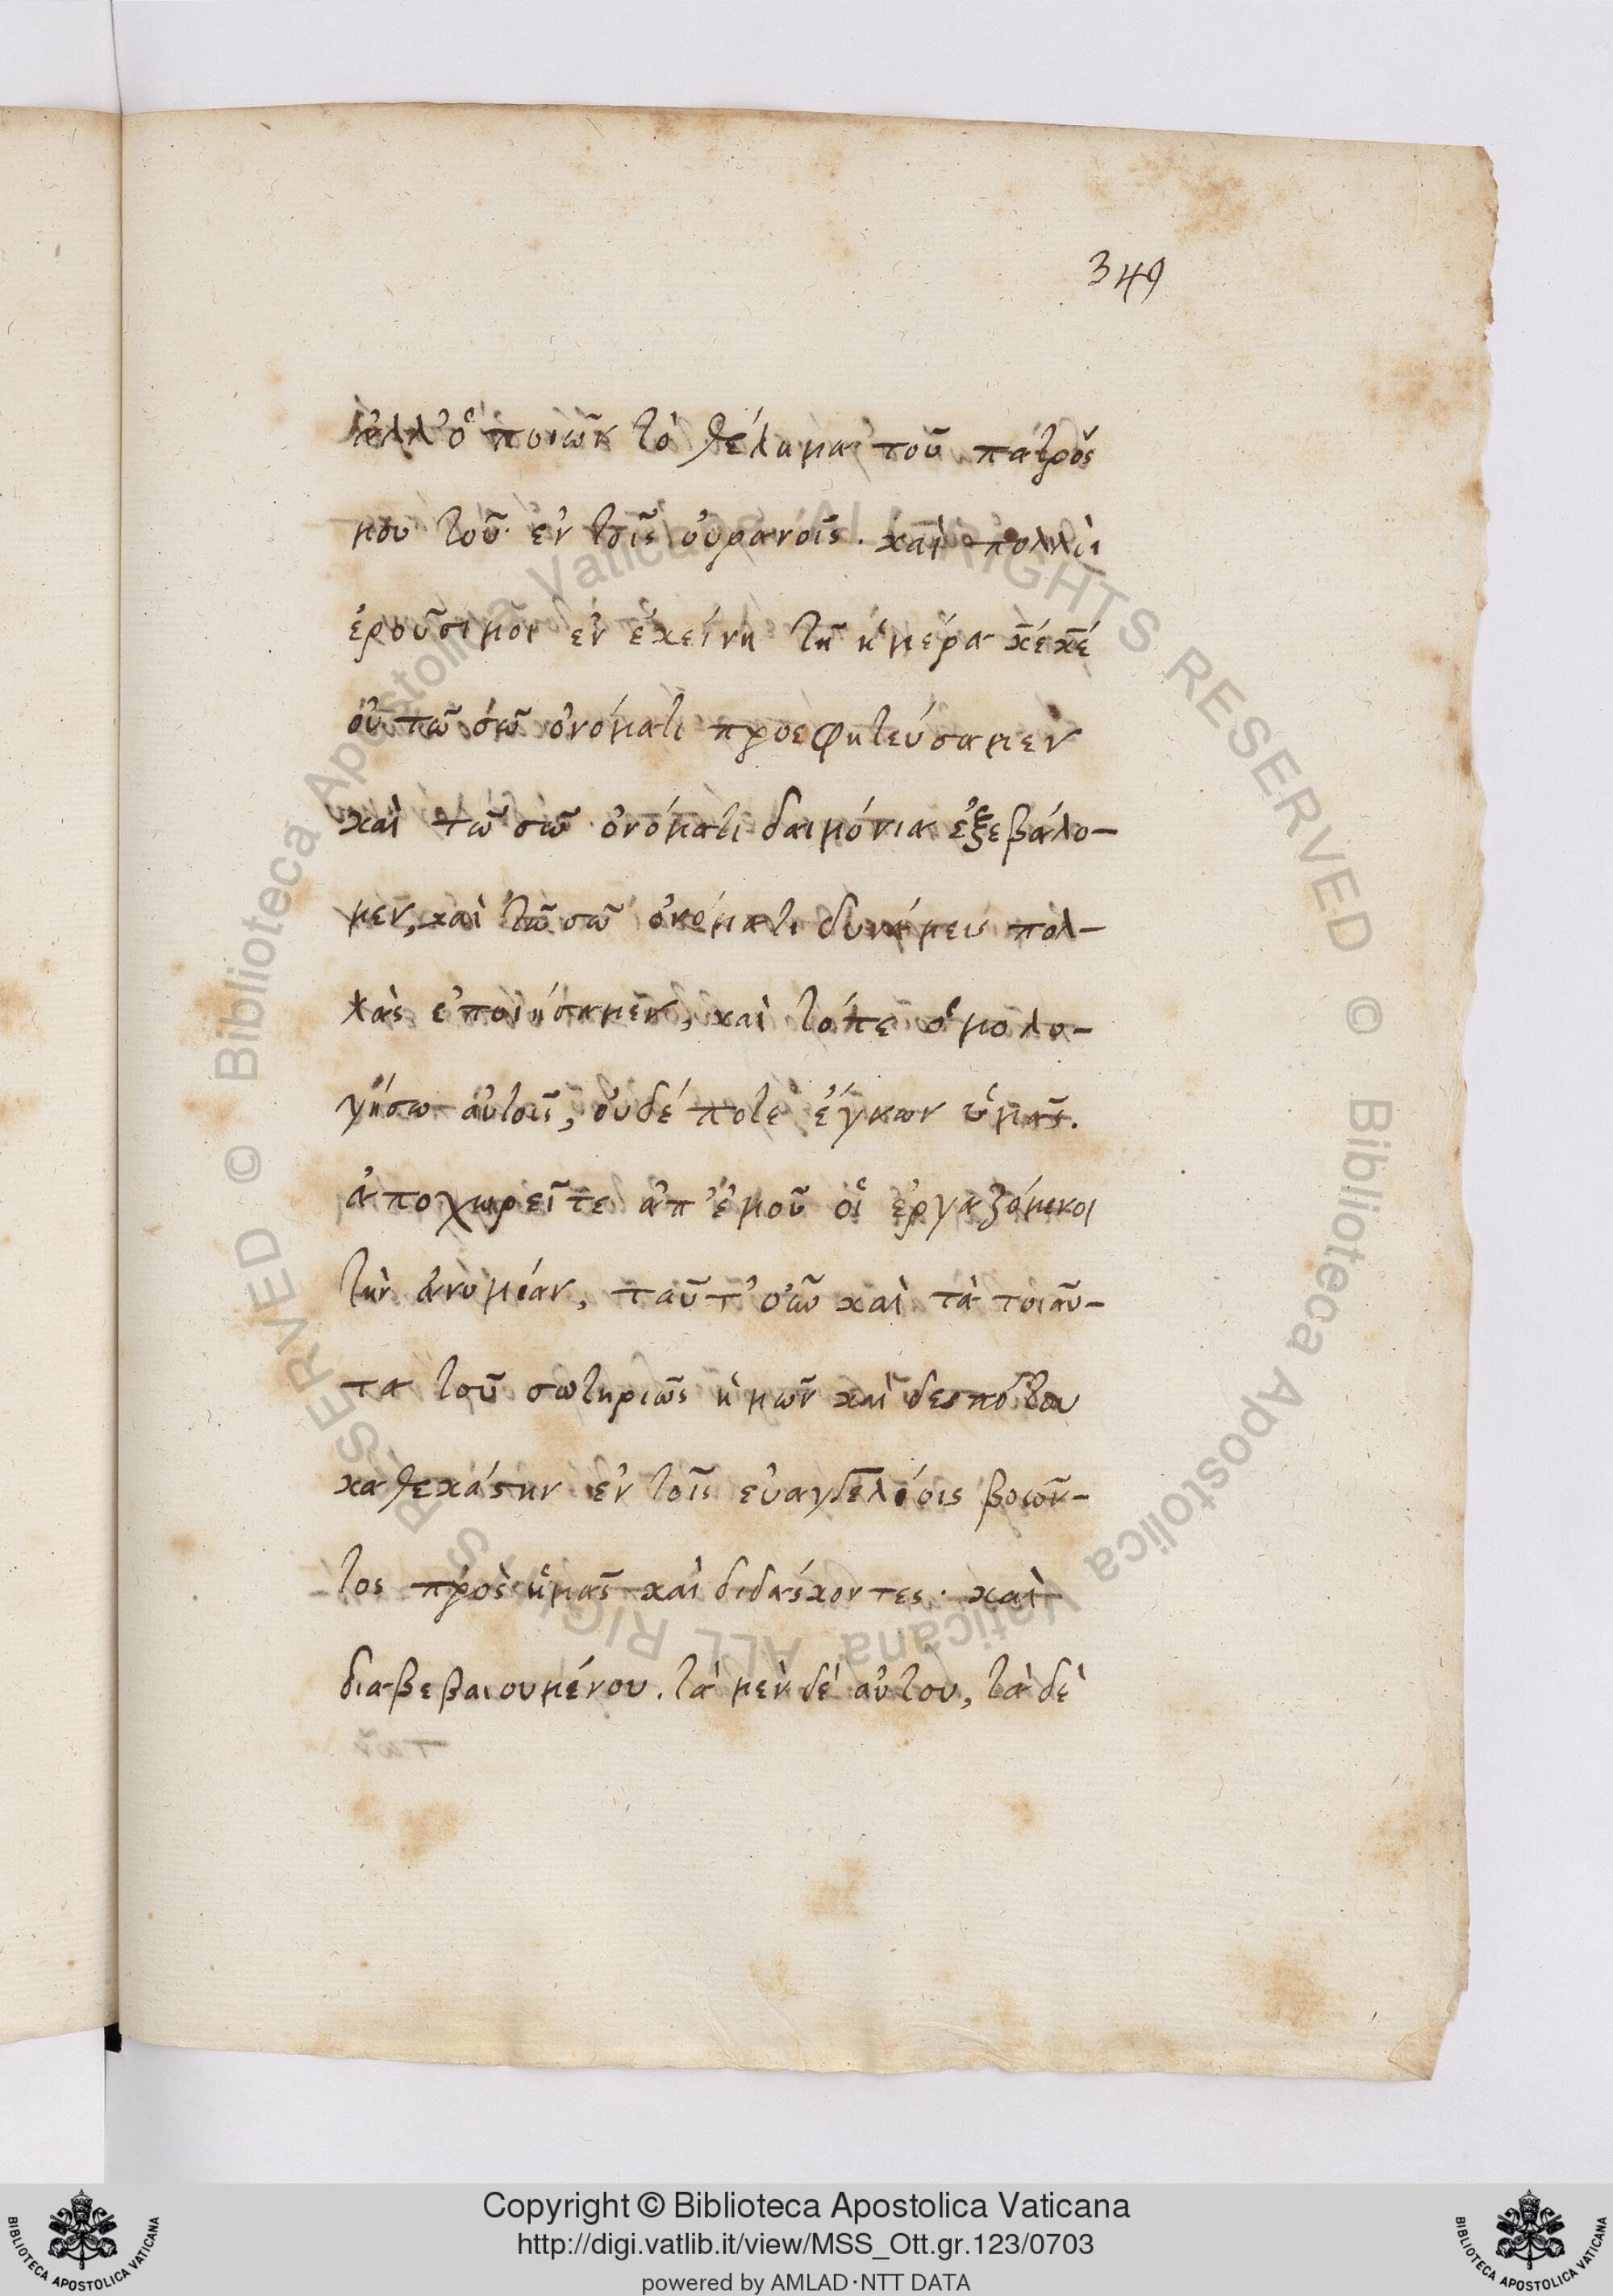 349
ἀλλ' ὁ ποιῶν τὸ θέλημα τοῦ πατρός
μου τοῦ ἐν τοῖς οὐρανοῖς. καὶ πολλοὶ
ἐροῦσι μοι ἐν ἐκείνη τῆ ἡμέρα κ̅έ κ̅έ
οὐ τῶ σῶ ὀνόματι προεφητεύσαμεν
καὶ τῶ σῶ ὀνόματι δαιμόνια ἐξεβάλο-
μεν, καὶ τῶ σῶ ὀνόματι δυνάμεις πολ-
λὰς ἐποιήσαμεν, καὶ τότε ὁμολο-
γήσω αὐτοῖς, οὐδέ ποτε ἔγνων ὑμᾶς.
ἀποχωρεῖτε ἀπ' ἐμοῦ οἱ ἐργαζόμενοι
τὴν ἀνομίαν, ταῦτ' οὖν καὶ τὰ τοιαῦ-
τα τοῦ σωτηριῶς ἡμῶν καὶ δεσπότου
καθεκάστην ἐν τοῖς εὐαγγελίοις βοῶν-
τος πρὸς ἡμᾶς καὶ διδάσκοντες. καὶ
διαβεβαιουμένου. τὰ μὲν δἐ αὐτου, τὰ δὲ
Copyright © Biblioteca Apostolica Vaticana
http://digi.vatlib.it/view/MSS_Ott.gr.123/0703
powered by AMLAD·NTT DATA
BIBLIOTECA APOSTOLICA VATICANA
BIBLIOTECA APOSTOLICA VATICANA
© Biblioteca Apostolica Vaticana ALL RIGHTS RESERVED © Biblioteca Apostolica Vaticana ALL RIGHTS RESERVED